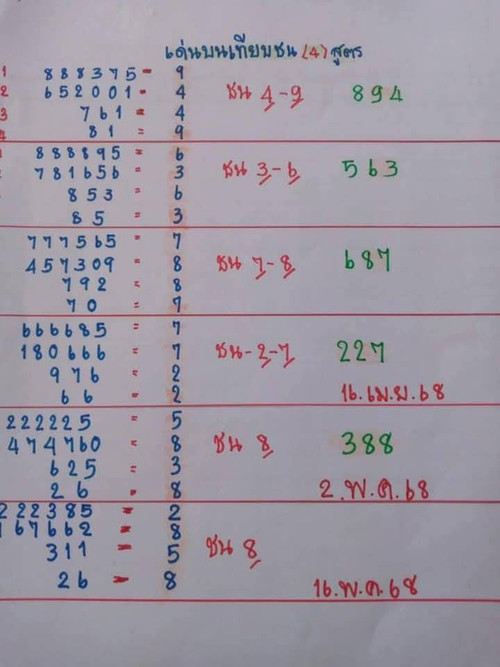 เด่นบนเทียบชน (4) สูตร
1 888375 = 9
2 652001 = 4
ชน 4-9 894
3 761 = 4
4 81 = 9
888895 = 6
781656 = 3
ชน 3-6 563
853 = 6
85 = 3
777565 = 7
457309 = 8
ชน 7-8 687
792 = 8
70 = 7
666685 = 7
180666 = 7
ชน-2-7 227
976 = 2
66 = 2
16.เม.ย.68
222225 = 5
474760 = 8
ชน 8 388
625 = 3
26 = 8
2.พ.ค.68
222385 = 2
167662 = 8
311 = 5
ชน 8
26 = 8
16.พ.ค.68